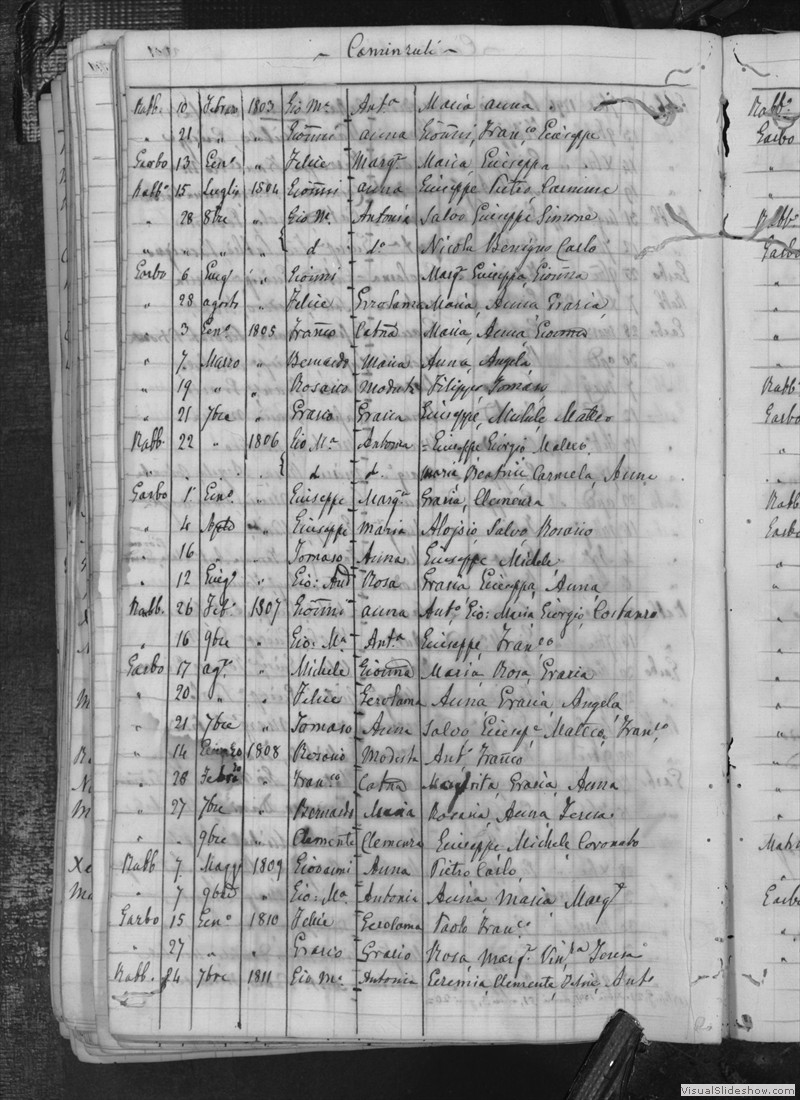 Caminzuli
Rabb. 10 Febro 1803 Gio Ma. Anta. Maria anna
" 21 " " Gioňni anna Gioňni, Franco. Giuseppe
Garbo 13 Geno. " Felice Margta. Maria Giuseppa
Rabbo. 15 Luglio 1804 Gioňni anna Giuseppe Pietro Carmine
" 28 8bre " Gio M. Antonia Salvo Giuseppe Simone
" " " " { d do. Nicola Benigno Carlo
Garbo 6 Giug. " Gioňni Marga. Giuseppa, Gioňna
" 28 agosto " Felice Gerolama Maria, Anna Grazia
" 3 Geno. 1805 Franco Catna Maria, Anna
" 7 Marzo " Bernardo Maria Anna, Angela
" 19 " " Rosario Modesta Filippo,
" 21 7bre " Grazio Grazia Giuseppe, Michele Matteo
Rabb. 22 " 1806 Gio. Ma Antonia = Giuseppe Giorgio
" " { d d. Maria Beatrice Carmela, Anna
Garbo 1o Geno. " Giuseppe Marga. Grazia, Clemenza
" 4 " Giuseppe Maria Aloisio Salvo Rosario
" 16 " Tomaso Anna Giuseppe Michele
" 12 Giug. " Gio: And Rosa Grazia Giuseppa, Anna
Rabb. 26 Feb. 1807 Gioňni anna Anto. Gio: Maria Giorgio, Costanzo
" 16 9bre " Gio: Ma Anta Giuseppe, Franco
Garbo 17 ago. " Michele Gioňna Maria, Rosa, Grazia
" 20 " " Felice Gerolama Anna Grazia, Angela
" 21 7bre " Tomaso Anna Salvo, Giusepe. Matteo, Franco.
" 14 Gennaro 1808 Rosario Modesta Anto. Franco
" 28 Febro " Franco Catna Margrita, Grazia, Anna
" 27 7bre " Bernardo Maria Rosaria, Anna, Teresa
" . 9bre " Clemente Clemenza Giuseppe Michele Coronato
Rabb 7 Magg 1809 Giovanni Anna Pietro Carlo
" 7 9bre " Gio: Ma. Antonia Anna Maria, Margta
Garbo 15 Geno. 1810 Felice Gerolama Paolo Franco.
" 27 " " Grazio Grazia Rosa, Marga. Vinza Teresa
Rabb. 24 7bre 1811 Gio Ma. Antonia Geremia, Clemente, Felice, Anto
Rabbo.
Garbo
Rabbo.
Garbo
Rabb
Garbo
Rabb
Garbo
Garbo
VisualSlideshow.com